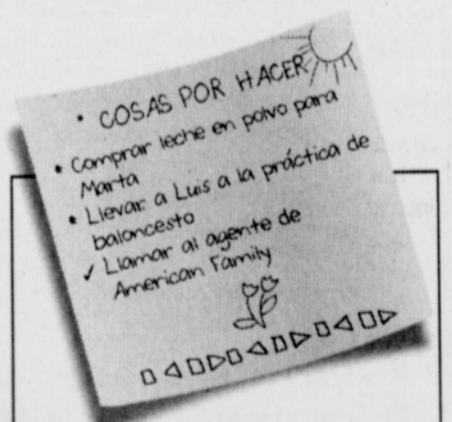 • COSAS POR HACER
• Comprar leche en polvo para
Marta
• Llevar a Luis a la práctica de
baloncesto
✓ Llamar al agente de
American Family